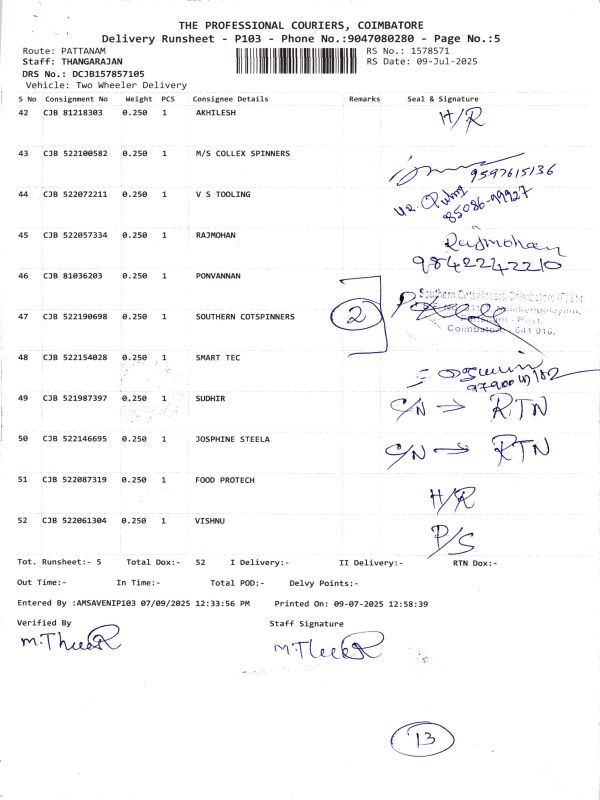 THE PROFESSIONAL COURIERS, COIMBATORE
Delivery Runsheet - P103 - Phone No.:9047080280 - Page No.:5
Route: PATTANAM RS No.: 1578571
Staff: THANGARAJAN RS Date: 09-Jul-2025
DRS No.: DCJB157857105
Vehicle: Two Wheeler Delivery
S No Consignment No Weight PCS Consignee Details Remarks Seal & Signature
42 CJB 81218303 0.250 1 AKHILESH H/R
43 CJB 522100582 0.250 1 M/S COLLEX SPINNERS
9597615136
44 CJB 522072211 0.250 1 V S TOOLING
85086-99927
45 CJB 522057334 0.250 1 RAJMOHAN Rajmohan
9842242210
46 CJB 81036203 0.250 1 PONVANNAN
Southern Cotspinners Coimbatore (P) Ltd.
47 CJB 522190698 0.250 1 SOUTHERN COTSPINNERS 2
Post,
Coimbatore - 641 016.
48 CJB 522154028 0.250 1 SMART TEC
49 CJB 521987397 0.250 1 SUDHIR C/N → RTN
50 CJB 522146695 0.250 1 JOSPHINE STEELA C/N → RTN
51 CJB 522087319 0.250 1 FOOD PROTECH H/R
52 CJB 522061304 0.250 1 VISHNU P/S
Tot. Runsheet:- 5 Total Dox:- 52 I Delivery:- II Delivery:- RTN Dox:-
Out Time:- In Time:- Total POD:- Delvy Points:-
Entered By :AMSAVENIP103 07/09/2025 12:33:56 PM Printed On: 09-07-2025 12:58:39
Verified By Staff Signature
13